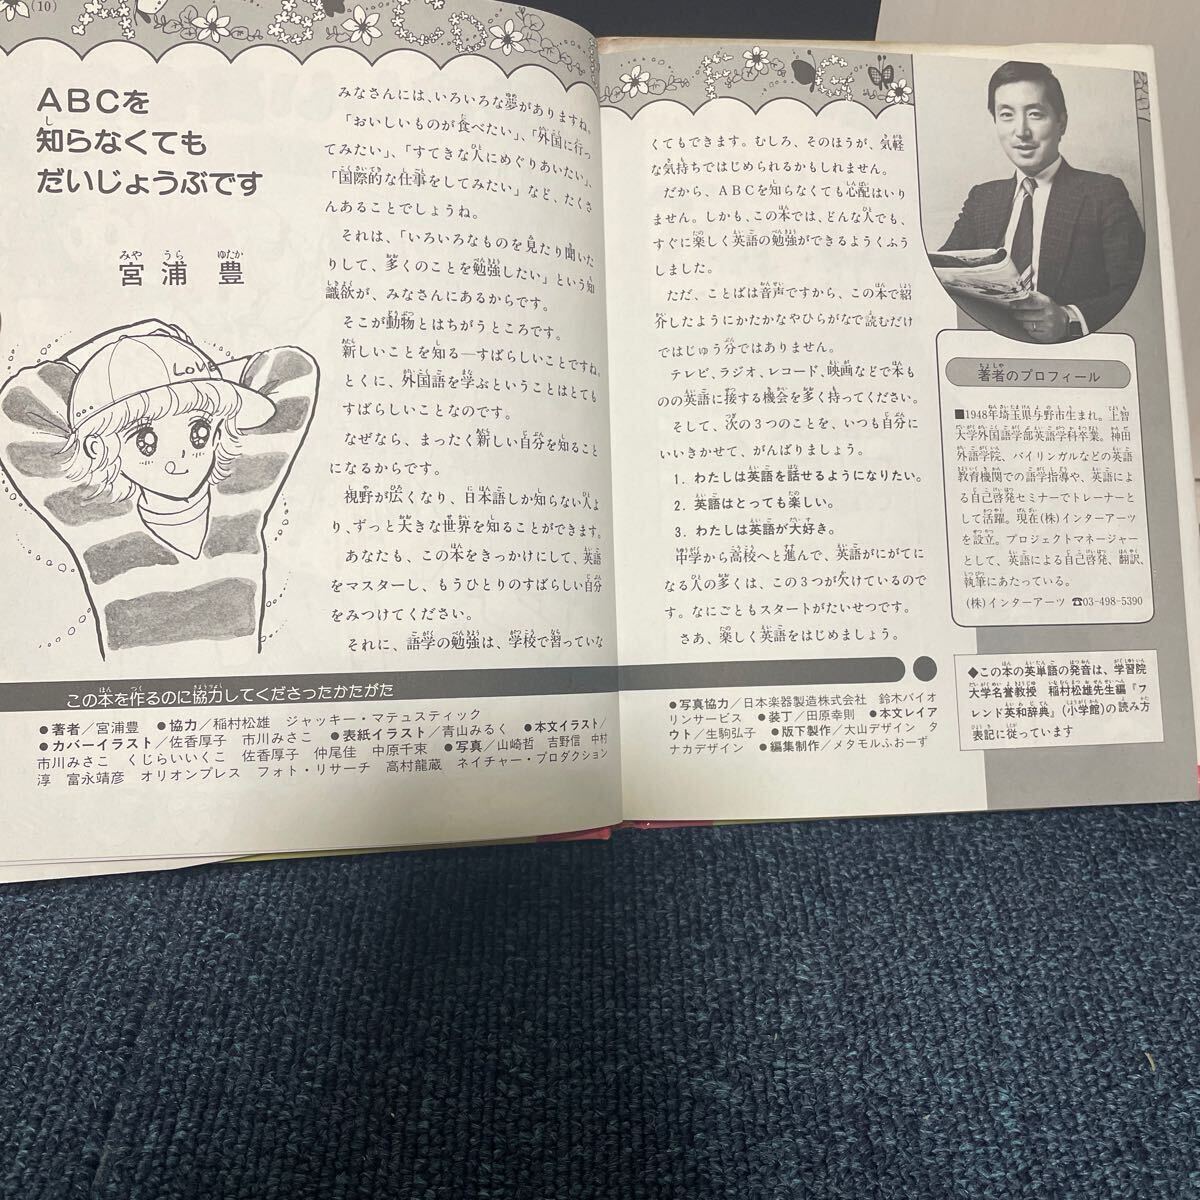 (10)
A B C D
ABCを
知らなくても
だいじょうぶです
宮浦 豊
みや うら ゆたか
LOVE
みなさんには、いろいろな夢がありますね。
「おいしいものが食べたい」、「外国に行っ
てみたい」、「すてきな人にめぐりあいたい」、
「国際的な仕事をしてみたい」など、たくさ
んあることでしょうね。
それは、「いろいろなものを見たり聞いた
りして、多くのことを勉強したい」という知
識欲が、みなさんにあるからです。
そこが動物とはちがうところです。
新しいことを知る―すばらしいことですね。
とくに、外国語を学ぶということはとても
すばらしいことなのです。
なぜなら、まったく新しい自分を知ること
になるからです。
視野が広くなり、日本語しか知らない人よ
り、ずっと大きな世界を知ることができます。
あなたも、この本をきっかけにして、英語
をマスターし、もうひとりのすばらしい自分
をみつけてください。
それに、語学の勉強は、学校で習っていな
F G
くてもできます。むしろ、そのほうが、気軽
な気持ちではじめられるかもしれません。
だから、ABCを知らなくても心配はいり
ません。しかも、この本では、どんな人でも、
すぐに楽しく英語の勉強ができるようくふう
しました。
ただ、ことばは音声ですから、この本で紹
介したようにかたかなやひらがなで読むだけ
ではじゅう分ではありません。
テレビ、ラジオ、レコード、映画などで本も
のの英語に接する機会を多く持ってください。
そして、次の3つのことを、いつも自分に
いいきかせて、がんばりましょう。
1. わたしは英語を話せるようになりたい。
2. 英語はとっても楽しい。
3. わたしは英語が大好き。
中学から高校へと進んで、英語がにがてに
なる人の多くは、この3つが欠けているので
す。なにごともスタートがたいせつです。
さあ、楽しく英語をはじめましょう。
著者のプロフィール
■1948年埼玉県与野市生まれ。上智
大学外国語学部英語学科卒業。神田
外語学院、バイリンガルなどの英語
教育機関での語学指導や、英語によ
る自己啓発セミナーでトレーナーと
して活躍。現在(株)インターアーツ
を設立。プロジェクトマネージャー
として、英語による自己啓発、翻訳、
執筆にあたっている。
(株)インターアーツ ☎03-498-5390
◆この本の英単語の発音は、学習院
大学名誉教授 稲村松雄先生編『フ
レンド英和辞典』(小学館)の読み方
表記に従っています
この本を作るのに協力してくださったかたがた
●著者/宮浦豊 ●協力/稲村松雄 ジャッキー・マテュスティック
●カバーイラスト/佐香厚子 市川みさこ ●表紙イラスト/青山みるく ●本文イラスト/
市川みさこ くじらいいくこ 佐香厚子 仲尾佳 中原千束 ●写真/山崎哲 吉野信 中村
淳 富永靖彦 オリオンプレス フォト・リサーチ 高村龍蔵 ネイチャー・プロダクション
●写真協力/日本楽器製造株式会社 鈴木バイオ
リンサービス ●装丁/田原幸則 ●本文レイア
ウト/生駒弘子 ●版下製作/大山デザイン タ
ナカデザイン ●編集制作/メタモルふおーず